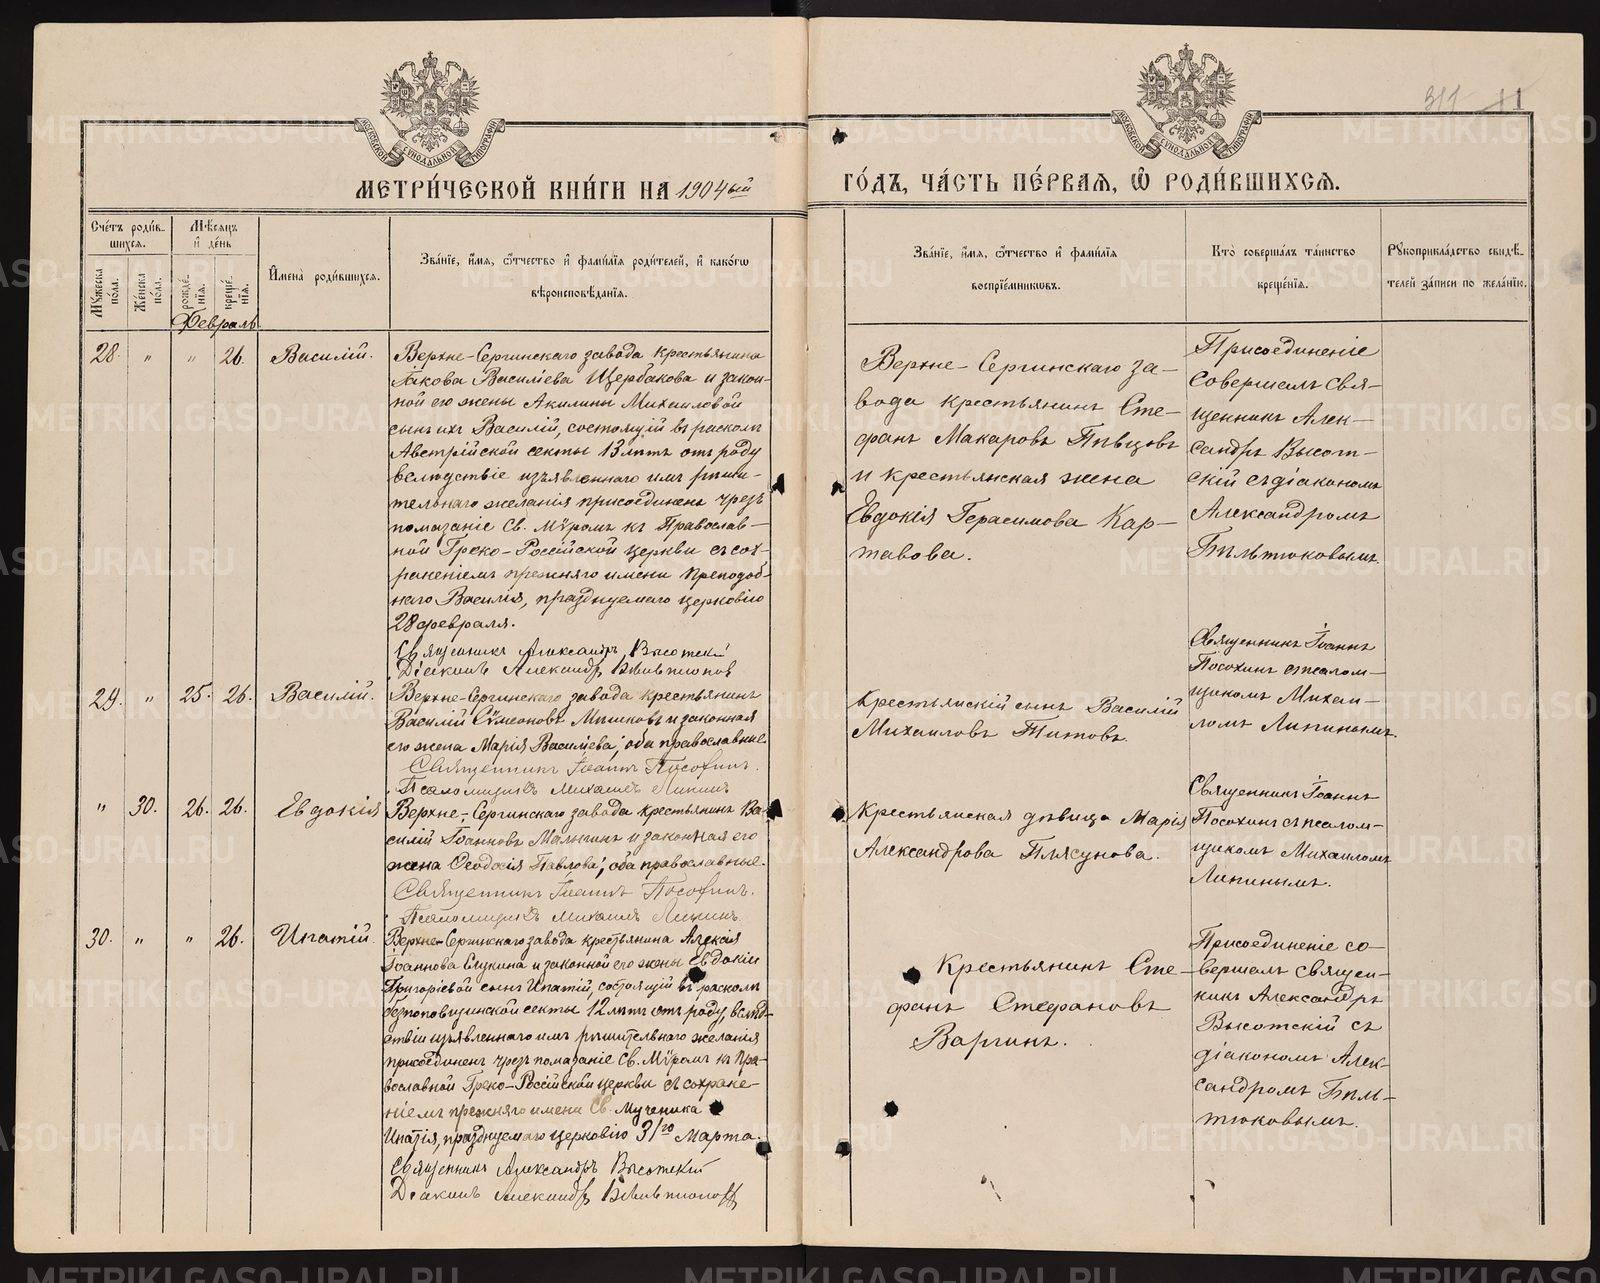 311 11
МЕТРИ́ЧЕСКОЙ КНИ́ГИ НА 1904ый
ГО́ДЪ, ЧА́СТЬ ПЕ́РВАЯ, Ѡ РОДИ́ВШИХСЯ.
Сче́тъ роди́в-
шихся.
Мѣ́сяцъ
и҆ де́нь
Мꙋ́жеска
по́ла.
Же́нска
по́ла.
рожде́-
нїѧ.
креще́-
нїѧ.
И҆мена̀ роди́вшихся.
Зва́нїе, и҆́мѧ, ѻ҆́тчество и҆ фами́лїѧ роди́телей, и҆ како́гѡ
вѣроисповѣ́данїѧ.
Зва́нїе, и҆́мѧ, ѻ҆́тчество и҆ фами́лїѧ
воспрїе́мникѡвъ.
Кто̀ соверша́лъ та́инство
креще́нїѧ.
Рꙋкоприкла́дство свидѣ́-
телей за́писи по жела́нїю.
Февраль
28. " " 26. Василій.
Верхне-Сергинскаго завода крестьянина
Іакова Василіева Щербакова и закон-
ной его жены Акилины Михаиловой
сынъ ихъ Василій, состоящій въ расколѣ
Австрійской секты 13 лѣтъ отъ роду
вслѣдствіе изъявленнаго имъ рѣши-
тельнаго желанія присоединенъ чрезъ
помазаніе Св. Мѵромъ къ Православ-
ной Греко-Россійской церкви съ сох-
раненіемъ прежняго имени Преподоб-
наго Василія, празднуемаго церковію
28 февраля.
Священникъ Александръ Высотскій
Діаконъ Александръ Бѣльтюковъ
Верхне-Сергинскаго за-
вода крестьянинъ Сте-
фанъ Макаровъ Пѣвцовъ
и крестьянская жена
Евдокія Герасимова Кар-
тавова.
Присоединеніе
совершалъ свя-
щенникъ Алек-
сандръ Высот-
скій съ діакономъ
Александромъ
Бѣльтюковымъ.
29. " 25. 26. Василій.
Верхне-Сергинскаго завода крестьянинъ
Василій Сѵмеоновъ Мишковъ и законная
его жена Марія Василіева; оба православные.
Священникъ Іоаннъ Посохинъ.
Псаломщикъ Михаилъ Липинъ
Крестьянскій сынъ Василій
Михаиловъ Титовъ.
Священникъ Іоаннъ
Посохинъ съ псалом-
щикомъ Михаи-
ломъ Липинымъ.
" 30. 26. 26. Евдокія
Верхне-Сергинскаго завода крестьянинъ Ва-
силій Іоанновъ Малыгинъ и законная его
жена Ѳеодосія Павлова; оба православные.
Священникъ Іоаннъ Посохинъ.
Псаломщикъ Михаилъ Липинъ
Крестьянская дѣвица Марія
Александрова Плясунова.
Священникъ Іоаннъ
Посохинъ съ псалом-
щикомъ Михаиломъ
Липинымъ.
30. " " 26. Ипатій.
Верхне-Сергинскаго завода крестьянина Алексія
Іоаннова Елукина и законной его жены Евдокіи
Григоріевой сынъ Ипатій, состоящій въ расколѣ
безпоповщинской секты 12 лѣтъ отъ роду, вслѣд-
ствіи изъявленнаго имъ рѣшительнаго желанія
присоединенъ чрезъ помазаніе Св. Мѵромъ къ Пра-
вославной Греко-Россійской церкви съ сохране-
ніемъ прежняго имени Св. Мученика
Ипатія, празднуемаго церковію 31го Марта.
Священникъ Александръ Высотскій
Діаконъ Александръ Бѣльтюковъ
Крестьянинъ Сте-
фанъ Стефановъ
Варгинъ.
Присоединеніе со-
вершалъ священ-
никъ Александръ
Высотскій съ
діакономъ Алек-
сандромъ Бѣль-
тюковымъ.
METRIKI.GASO-URAL.RU